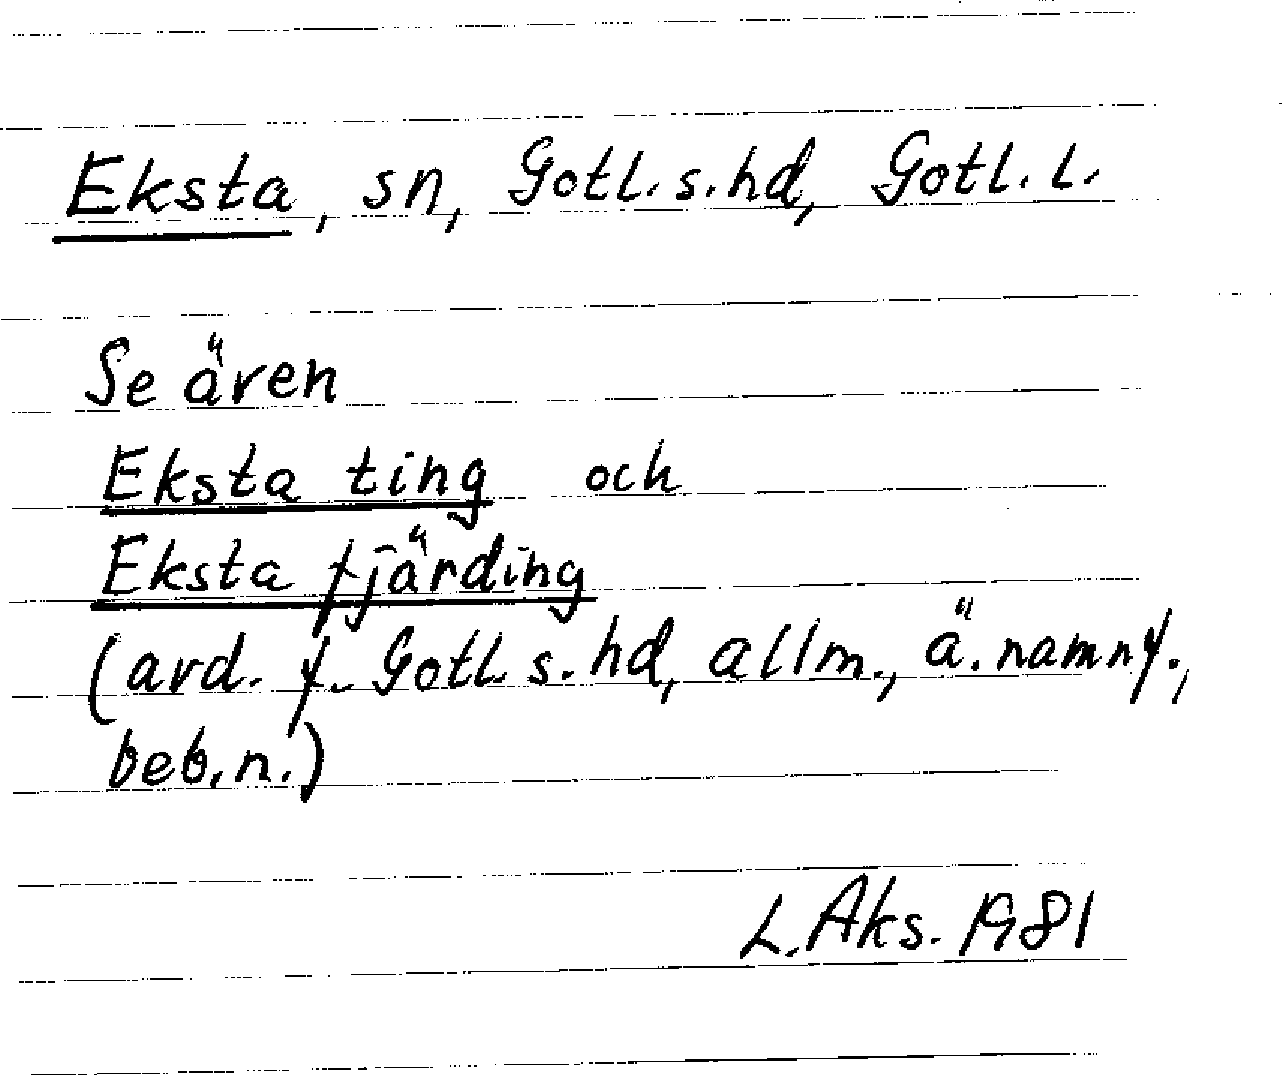 Eksta, sn, Gotl. s. hd, Gotl. l.
Se även
Eksta ting och
Eksta fjärding
(avd. f. Gotl. s. hd, allm., ä. namnf.,
beb.n.)
L. Aks. 1981